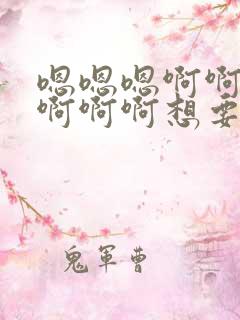 嗯嗯嗯啊啊
啊啊啊想要
鬼军曹